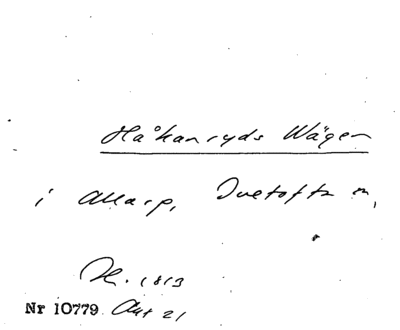 Håkanryds Wägen
i Allarp, Ivetofta sn,
H. 1813
Nr 10779 Akt 21